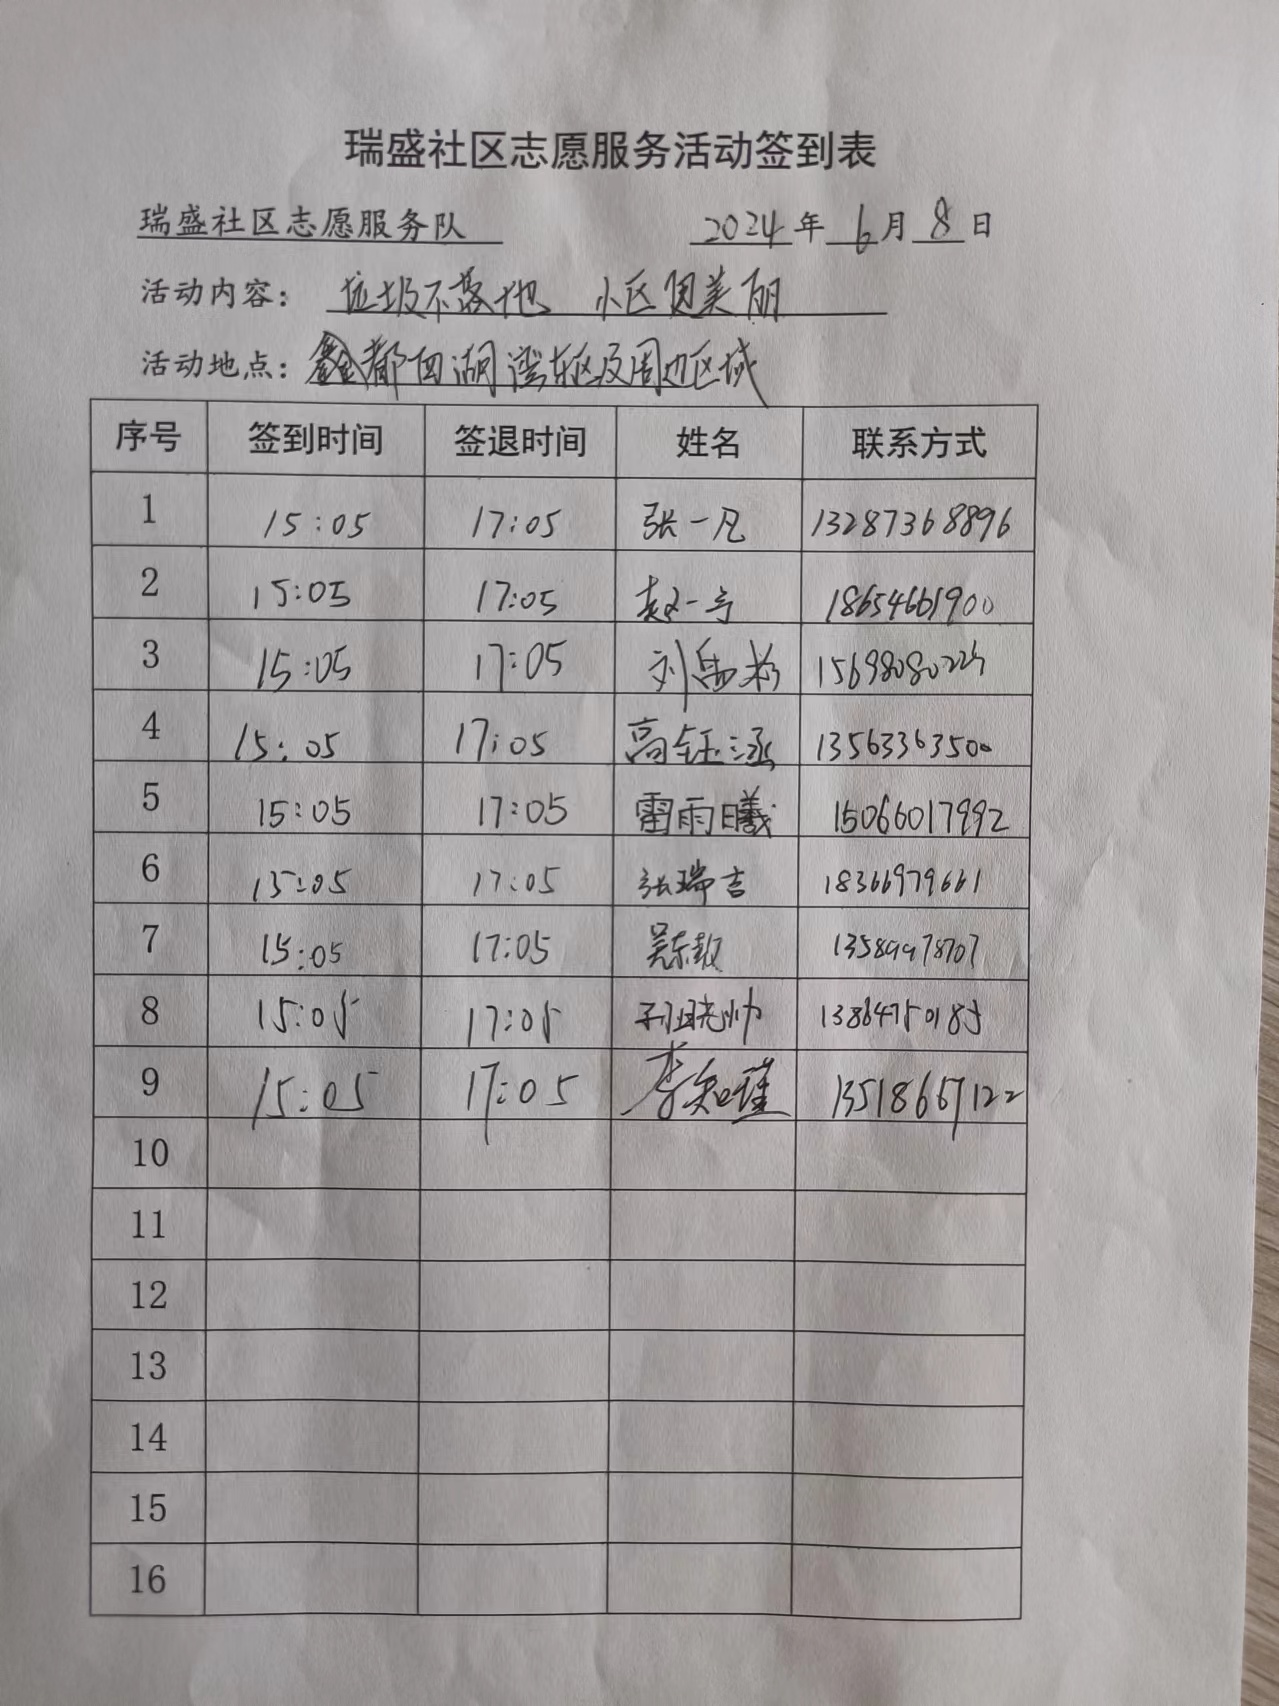 瑞盛社区志愿服务活动签到表
瑞盛社区志愿服务队 2024年 6月 8日
活动内容： 垃圾不落地 小区更美丽
活动地点：鑫都西湖湾东区及周边区域
序号 签到时间 签退时间 姓名 联系方式
1 15:05 17:05 张一凡 13287368896
2 15:05 17:05 赵一宁 18654661900
3 15:05 17:05 刘 
4 15:05 17:05 高钰涵 13563363500
5 15:05 17:05 雷雨曦 15066017992
6 15:05 17:05 张瑞吉 18366979661
7 15:05 17:05 吴东 13589978707
8 15:05 17:05 孙晓帅 13864750185
9 15:05 17:05 李知瑾 13518667122
10
11
12
13
14
15
16